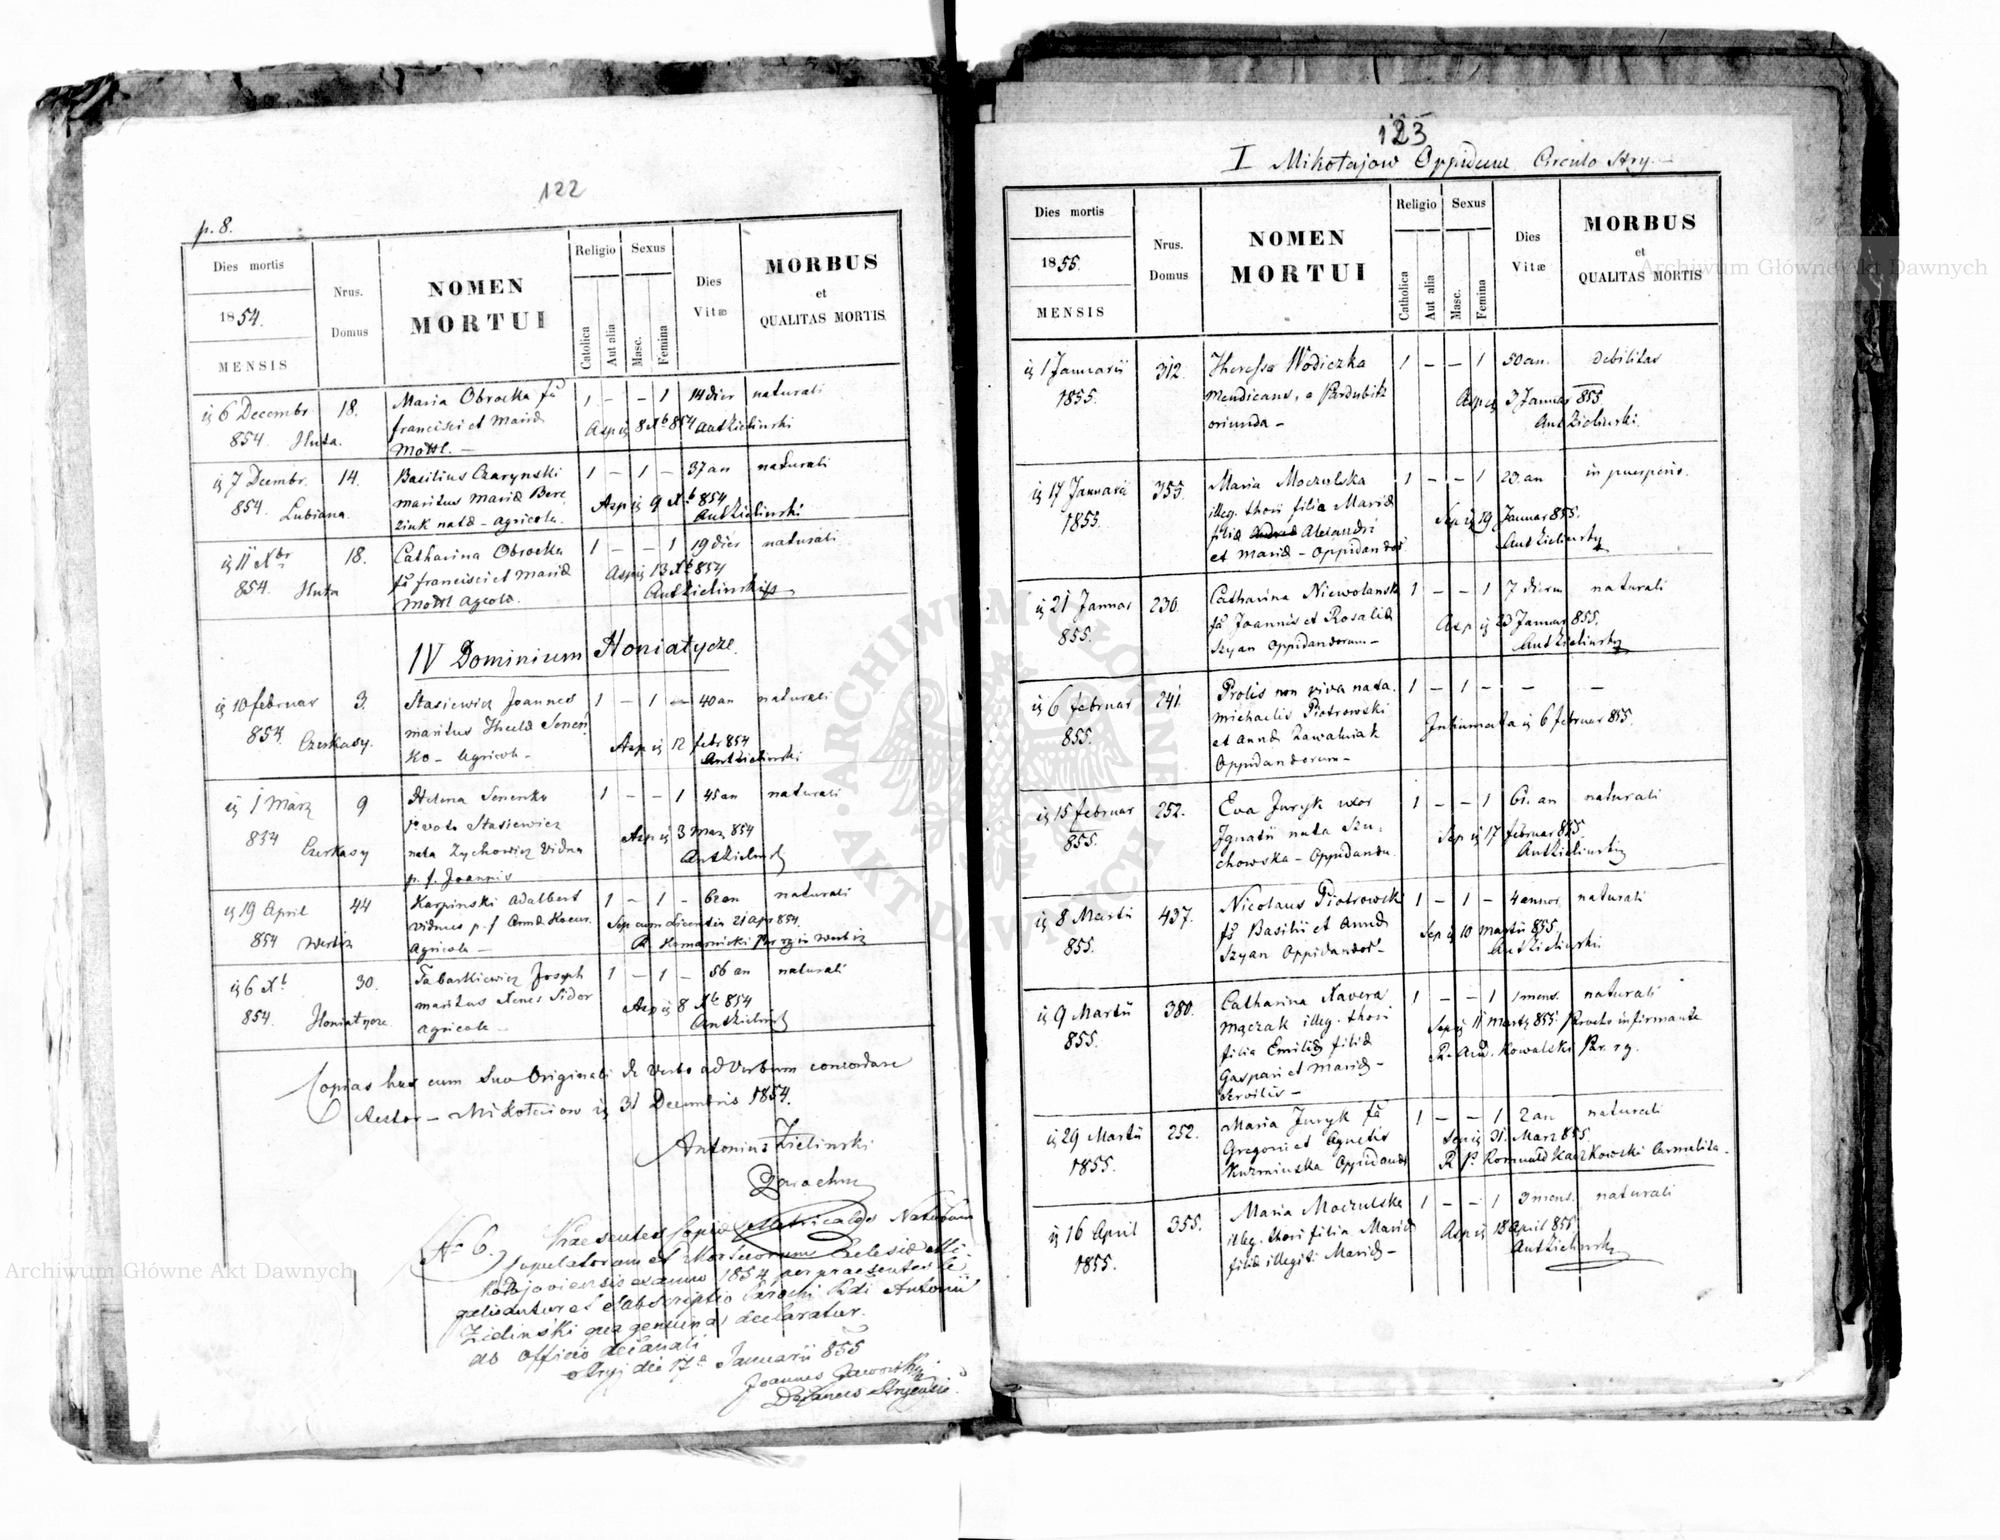 122
p. 8.
Dies mortis
1854.
MENSIS
Nrus.
Domus
NOMEN
MORTUI
Religio
Sexus
Catolica
Aut alia
Masc.
Femina
Dies
Vitæ
MORBUS
et
QUALITAS MORTIS.
6 Decembr. 18. Maria Obrocka 1 - - 1 14 dier naturali
854. Huta. francisci et Mariæ 8 Xb 854 Ant Zielinski
Mottl. -
7 Decembr. 14. Basilius Czarynski 1 - 1 - 37 an naturali
854. Lubiana. maritus Mariæ Bere 9 Xb 854
zink natæ - agricola. Ant Zielinski
11 Xbr 18. Catharina Obrocka 1 - - 1 19 dier naturali
854. Huta francisci et Mariæ 13 Xb 854
Mottl agricola. Ant Zielinski
IV Dominium Honiatycze.
10 februar 3. Stasiewicz Joannes 1 - 1 - 40 an naturali
854. Czerkasy. maritus 12 febr 854
ko - Agricola - Ant Zielinski
1 März 9 Helena Senenko 1 - - 1 45 an naturali
854 Czerkasy voto Stasiewicz 3 Marz 854
nata Zychowicz vidua Ant Zielinski
p. f. Joannis
19 April 44 Karpinski Adalbert 1 - 1 - 62 an naturali
854 Werbiz viduus p. f. Annæ Sep cum licentia 21 apr 854.
agricola - R. Komarnicki Par. Werbiz
6 Xb 30. Tabarkiewicz Joseph 1 - 1 - 56 an naturali
854. Honiatycze maritus Xenes Sidor 8 Xb 854
agricola - Ant Zielinski
Copias has cum suo Originali de Verbo ad Verbum concordare
Testor - Mikołaiow 31 Decembris 1854.
Antonius Zielinski
Parochus
N 6.
Præsentes Copiæ Matricales Natorum
Copulatorum et Mortuorum Eclesiæ Mi-
kołajoviensis ex anno 1854 per præsentes le-
galisantur et subscriptio Parochi Rdi Antonii
Zielinski qua genuina declaratur.
ab officio decanali
Stryj die 17a Januarii 855
Joannes Jaworski
Decanus Stryensis.
123
I Mikołajow Oppidum Circulo Stry. -
Dies mortis
1855.
MENSIS
Nrus.
Domus
NOMEN
MORTUI
Religio
Sexus
Catholica
Aut alia
Masc.
Femina
Dies
Vitæ
MORBUS
et
QUALITAS MORTIS
1 Januarii 312. Theressa Wodiczka 1 - - 1 50 an. debilitas
1855. mendicans, e Pardubitz 3 Januar 855
oriunda - Ant Zielinski.
17 Januarii 355. Maria Moczulska 1 - - 1 20 an in puerperio.
1855. illeg. thori filia Mariæ 19 Januar 855.
filiæ Alexandri Ant Zielinski
et Mariæ - Oppidandor
21 Januar 236. Catharina Niewolansk 1 - - 1 7 dierum naturali
855. Joannis et Rosaliæ 23 Januar 855.
Szyan Oppidandorum - Ant Zielinski
6 februar 241. Prolis non viva nata. 1 - 1 - - -
855. Michaelis Piotrowski 6 februar 855.
et Annæ Zawalniak
Oppidandorum -
15 februar 252. Eva Juryk uxor 1 - - 1 61. an naturali
855. Ignatii nata Szu- Sep 17 februar 855.
chowska - Oppidanda Ant Zielinski
8 Martii 437. Nicolaus Piotrowsk 1 - 1 - 4 annor. naturali
855. Basilii et Annæ Sep 10 Martii 855.
Szyan Oppidandor - Ant Zielinski
9 Martii 380. Catharina Xavera 1 - - 1 1 mens. naturali
855. Mączak illeg. thori Sep 11 Martii 855. Parocho infirmante
filia Emiliæ filiæ R. And. Kowalski Par. rg.
Gaspari et Mariæ -
Servilis -
29 Martii 252. Maria Juryk 1 - - 1 2 an naturali
1855. Gregorii et Agnetis Sep 31. Marz 855.
Kuzminska Oppidandor R. P. Romuald Kaczkowski Carmelita.
16 April 355. Maria Moczulska 1 - - 1 3 mens. naturali
1855. illeg. thori filia Mariæ 18 April 855.
filiæ illegit. Mariæ - Ant Zielinski
Archiwum Główne Akt Dawnych
Archiwum Główne Akt Dawnych
ARCHIWUM GŁÓWNE AKT DAWNYCH